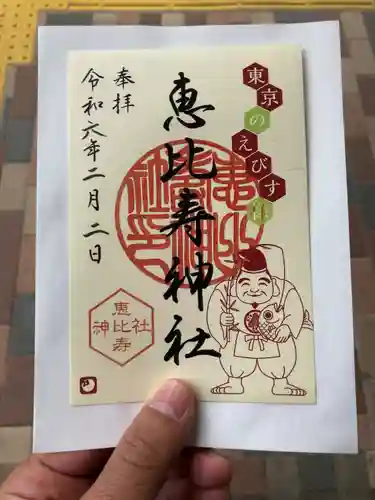 東京のえびす様
恵比寿神社
奉拝
令和六年二月二日
恵比寿
神社